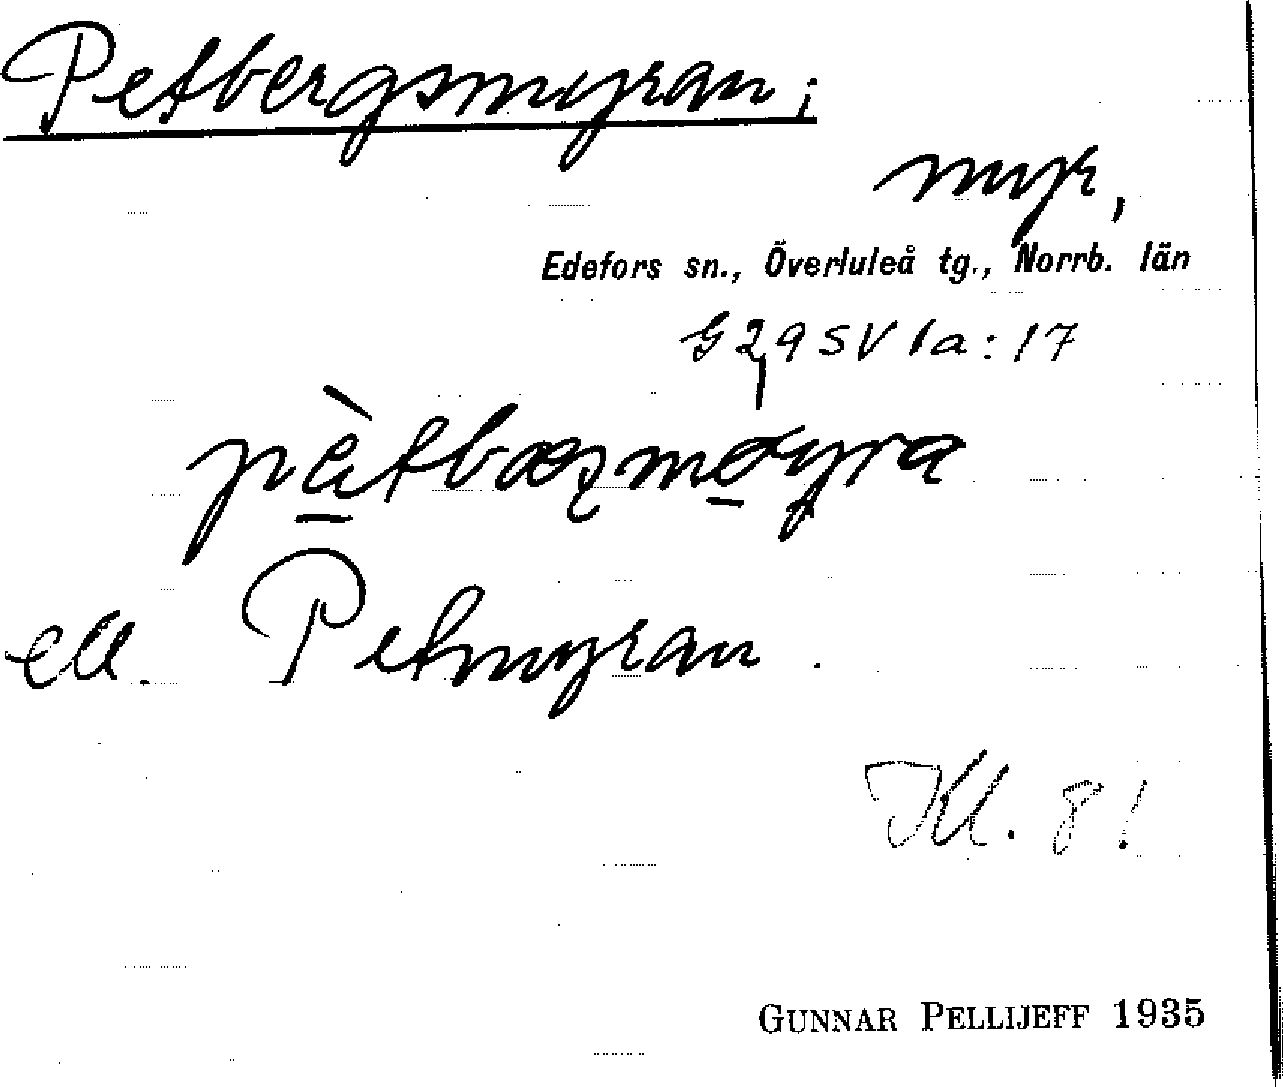 Petbergsmyran;
myr,
Edefors sn., Överluleå tg., Norrb. län
G 29 SV 1a:17
pètbæʂmøyra
ell. Petmyran.
Kl. 8!
GUNNAR PELLIJEFF 1935